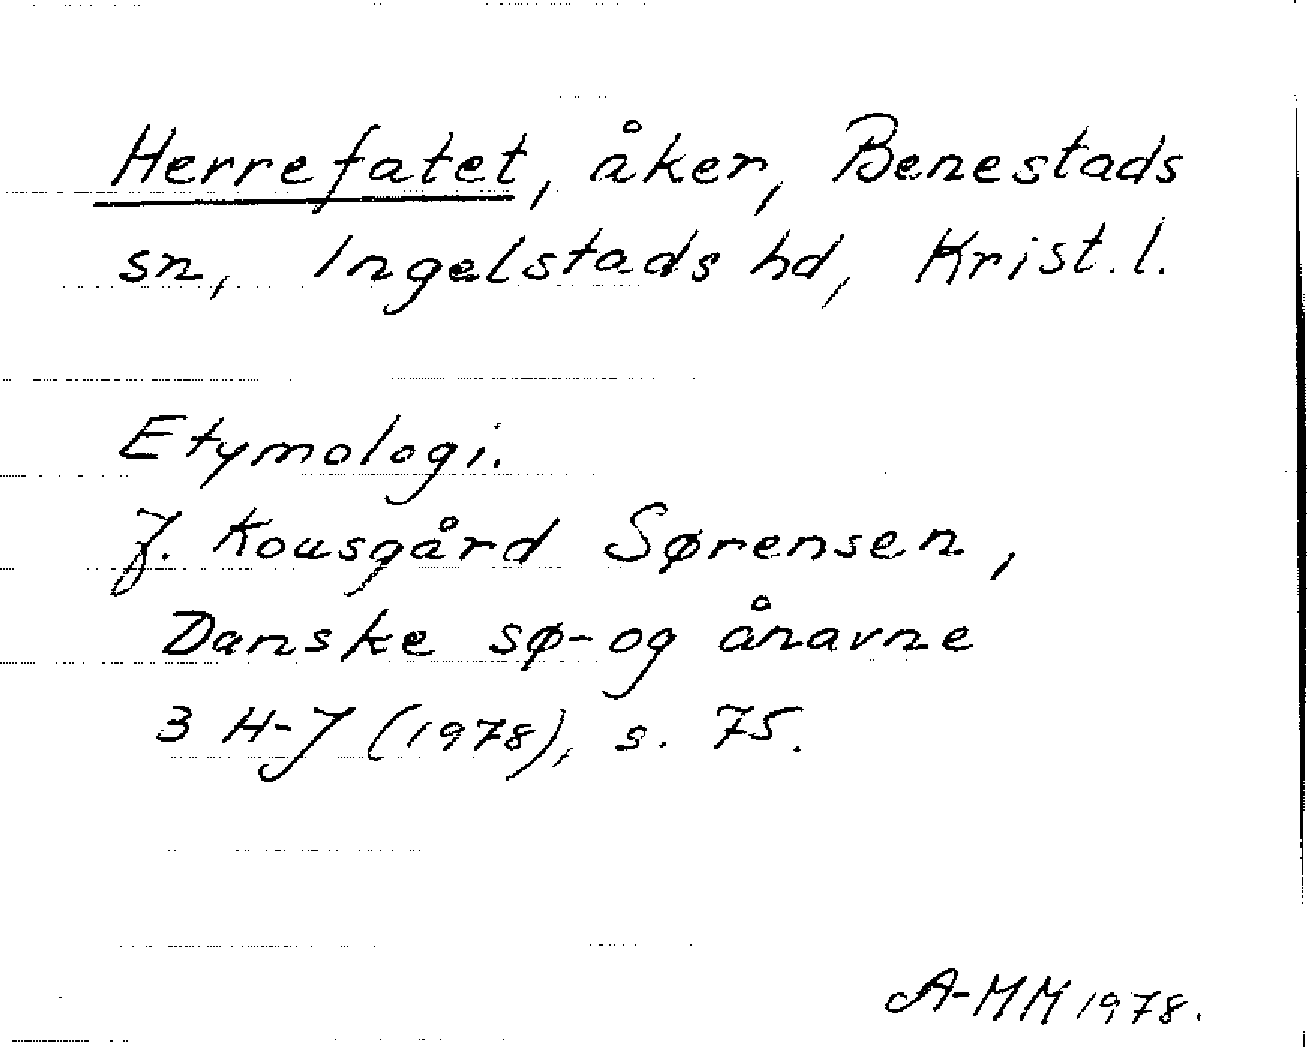 Herrefatet, åker, Benestads
sn, Ingelstads hd, Krist. l.
Etymologi.
J. Kousgård Sørensen,
Danske sø- og ånavne
3 H-J (1978), s. 75.
A-MM 1978.